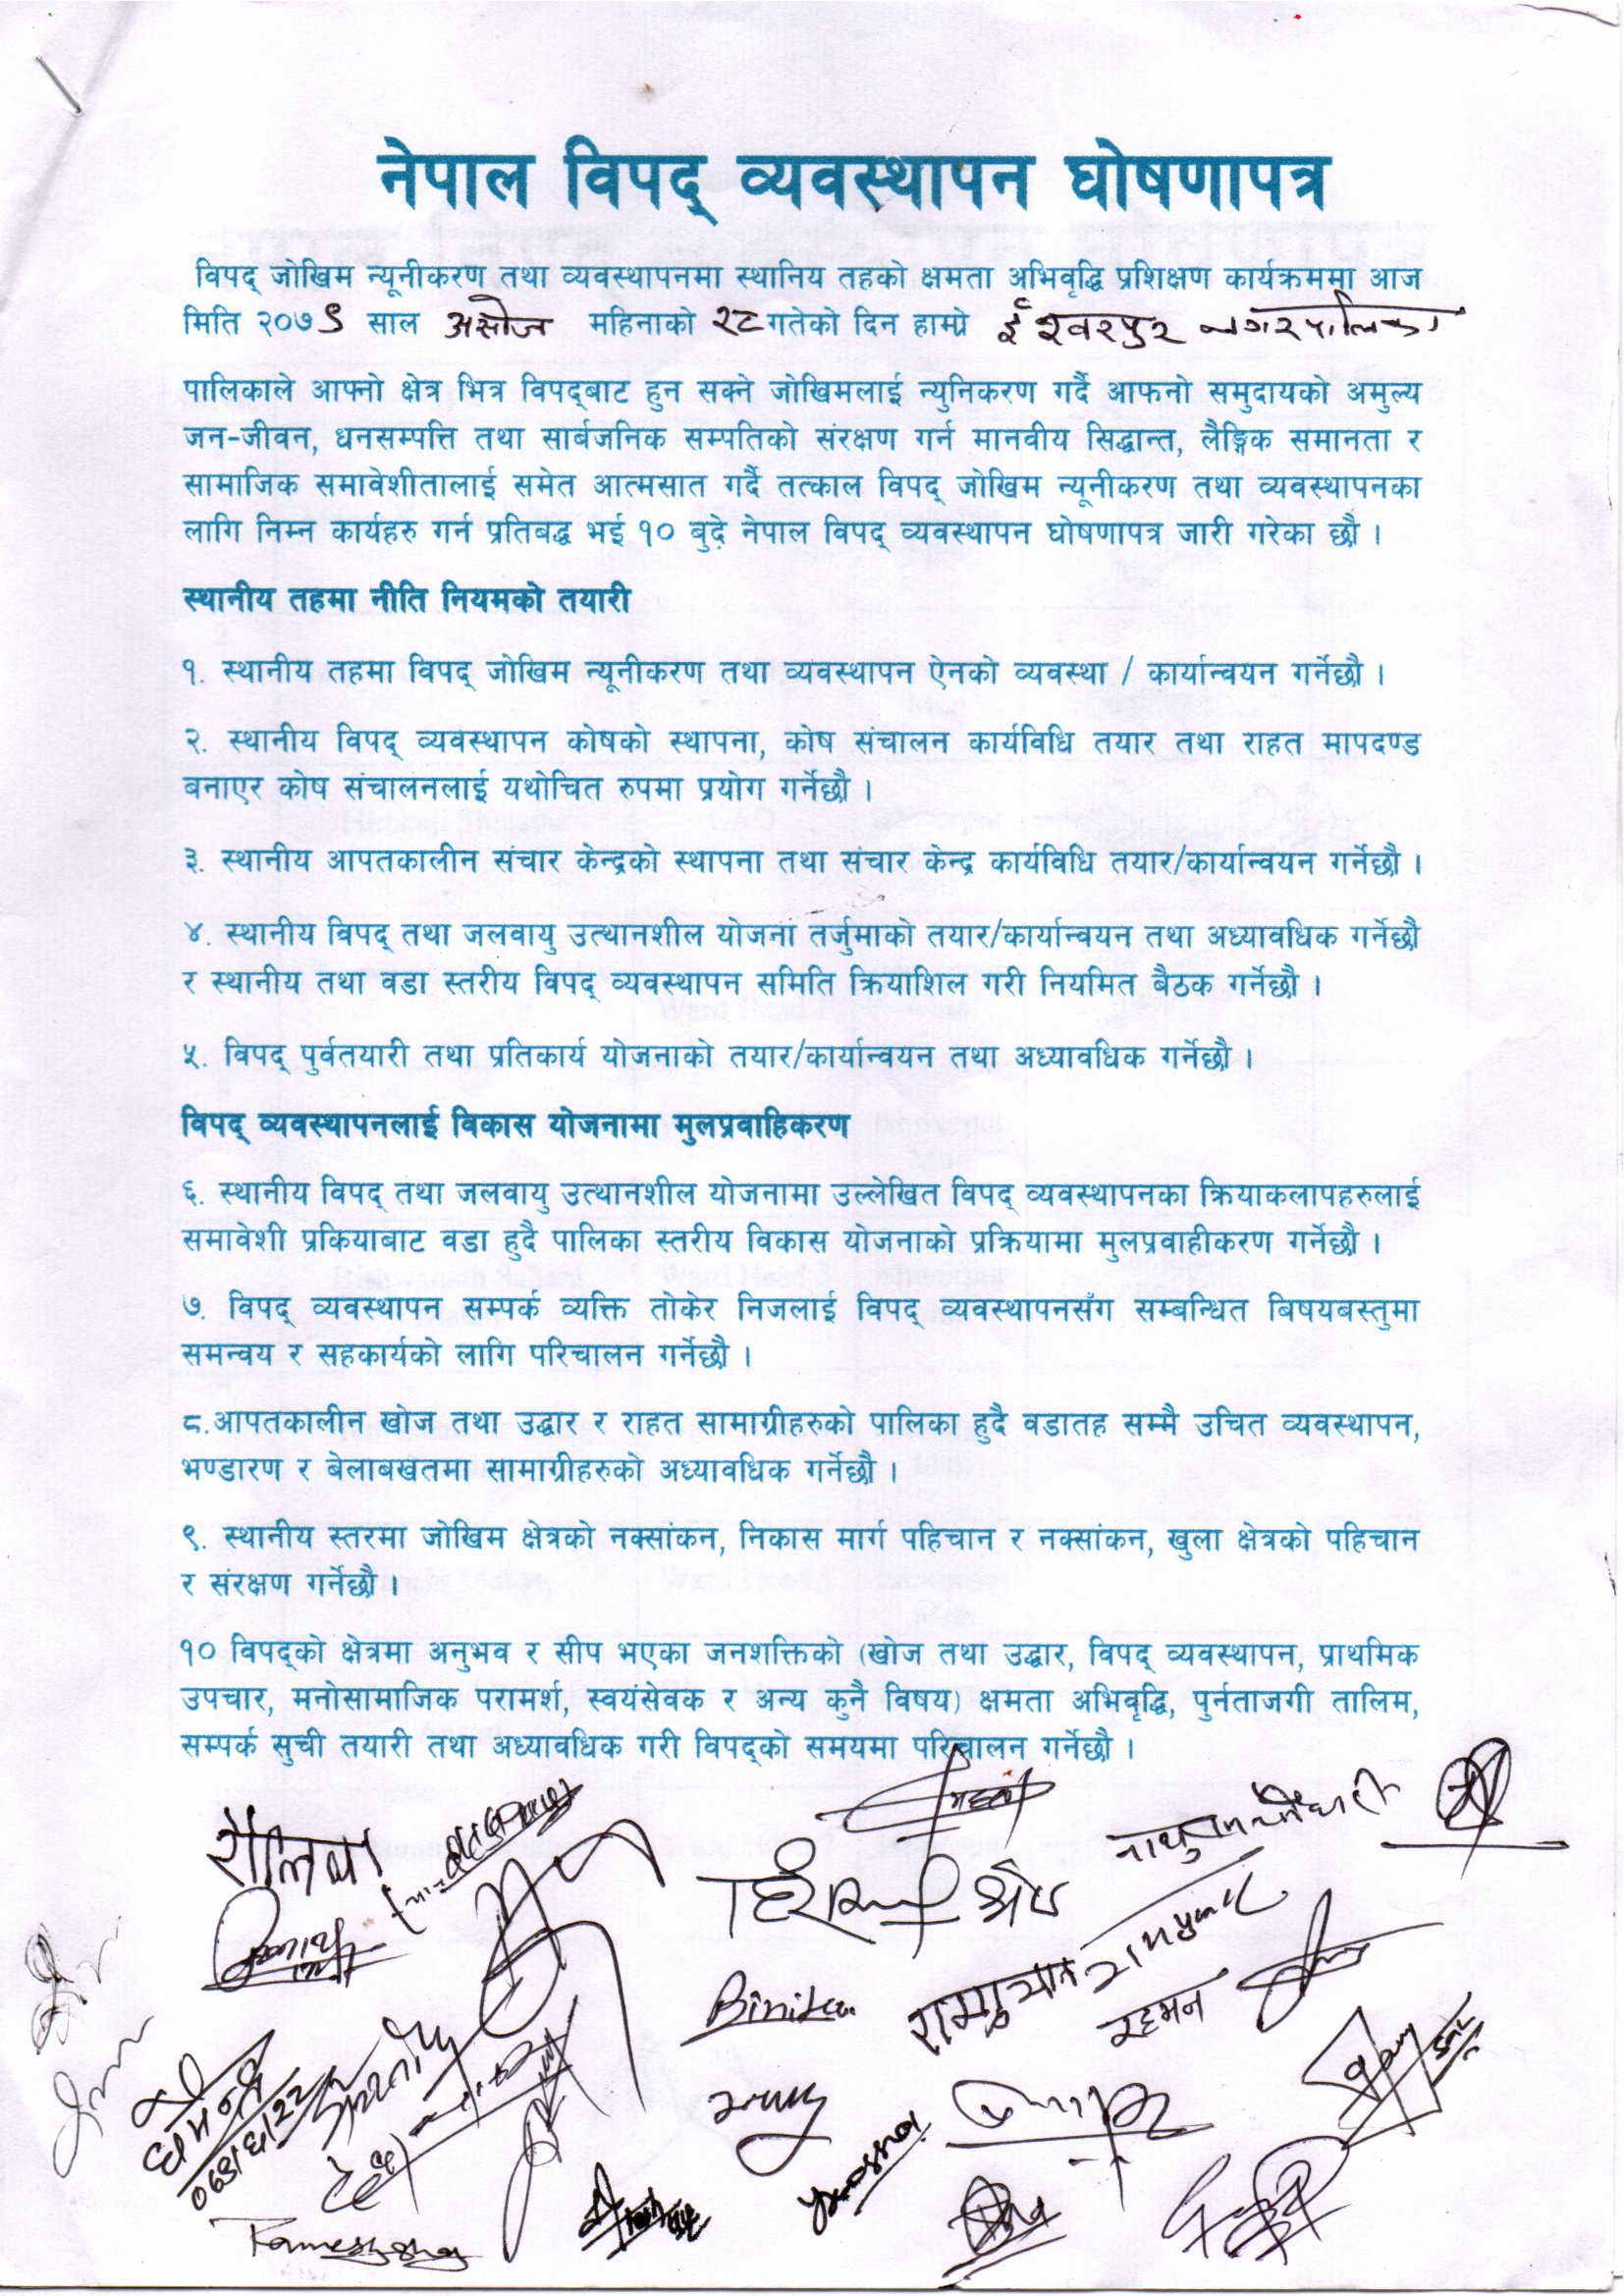 नेपाल विपद् व्यवस्थापन घोषणापत्र
विपद् जोखिम न्यूनीकरण तथा व्यवस्थापनमा स्थानिय तहको क्षमता अभिवृद्धि प्रशिक्षण कार्यक्रममा आज
मिति २०७९ साल असोज महिनाको २८ गतेको दिन हाम्रो ईश्वरपुर नगरपालिका
पालिकाले आफ्नो क्षेत्र भित्र विपद्बाट हुन सक्ने जोखिमलाई न्युनिकरण गर्दै आफनो समुदायको अमुल्य
जन-जीवन, धनसम्पत्ति तथा सार्बजनिक सम्पतिको संरक्षण गर्न मानवीय सिद्धान्त, लैङ्गिक समानता र
सामाजिक समावेशीतालाई समेत आत्मसात गर्दै तत्काल विपद् जोखिम न्यूनीकरण तथा व्यवस्थापनका
लागि निम्न कार्यहरु गर्न प्रतिबद्ध भई १० बुदे नेपाल विपद् व्यवस्थापन घोषणापत्र जारी गरेका छौ ।
स्थानीय तहमा नीति नियमको तयारी
१. स्थानीय तहमा विपद् जोखिम न्यूनीकरण तथा व्यवस्थापन ऐनको व्यवस्था / कार्यान्वयन गर्नेछौ ।
२. स्थानीय विपद् व्यवस्थापन कोषको स्थापना, कोष संचालन कार्यविधि तयार तथा राहत मापदण्ड
बनाएर कोष संचालनलाई यथोचित रुपमा प्रयोग गर्नेछौ ।
३. स्थानीय आपतकालीन संचार केन्द्रको स्थापना तथा संचार केन्द्र कार्यविधि तयार/कार्यान्वयन गर्नेछौ ।
४. स्थानीय विपद् तथा जलवायु उत्थानशील योजना तर्जुमाको तयार/कार्यान्वयन तथा अध्यावधिक गर्नेछौ
र स्थानीय तथा वडा स्तरीय विपद् व्यवस्थापन समिति क्रियाशिल गरी नियमित बैठक गर्नेछौ ।
५. विपद् पुर्वतयारी तथा प्रतिकार्य योजनाको तयार/कार्यान्वयन तथा अध्यावधिक गर्नेछौ ।
विपद् व्यवस्थापनलाई विकास योजनामा मुलप्रवाहिकरण
६. स्थानीय विपद् तथा जलवायु उत्थानशील योजनामा उल्लेखित विपद् व्यवस्थापनका क्रियाकलापहरुलाई
समावेशी प्रकियाबाट वडा हुदै पालिका स्तरीय विकास योजनाको प्रक्रियामा मुलप्रवाहीकरण गर्नेछौ ।
७. विपद् व्यवस्थापन सम्पर्क व्यक्ति तोकेर निजलाई विपद् व्यवस्थापनसँग सम्बन्धित बिषयबस्तुमा
समन्वय र सहकार्यको लागि परिचालन गर्नेछौ ।
८.आपतकालीन खोज तथा उद्धार र राहत सामाग्रीहरुको पालिका हुदै वडातह सम्मै उचित व्यवस्थापन,
भण्डारण र बेलाबखतमा सामाग्रीहरुको अध्यावधिक गर्नेछौ ।
९. स्थानीय स्तरमा जोखिम क्षेत्रको नक्सांकन, निकास मार्ग पहिचान र नक्सांकन, खुला क्षेत्रको पहिचान
र संरक्षण गर्नेछौ ।
१० विपद्को क्षेत्रमा अनुभव र सीप भएका जनशक्तिको (खोज तथा उद्धार, विपद् व्यवस्थापन, प्राथमिक
उपचार, मनोसामाजिक परामर्श, स्वयंसेवक र अन्य कुनै विषय) क्षमता अभिवृद्धि, पुर्नताजगी तालिम,
सम्पर्क सुची तयारी तथा अध्यावधिक गरी विपद्को समयमा परिचालन गर्नेछौ ।
श्रेष्ठ
Binita
रहमान